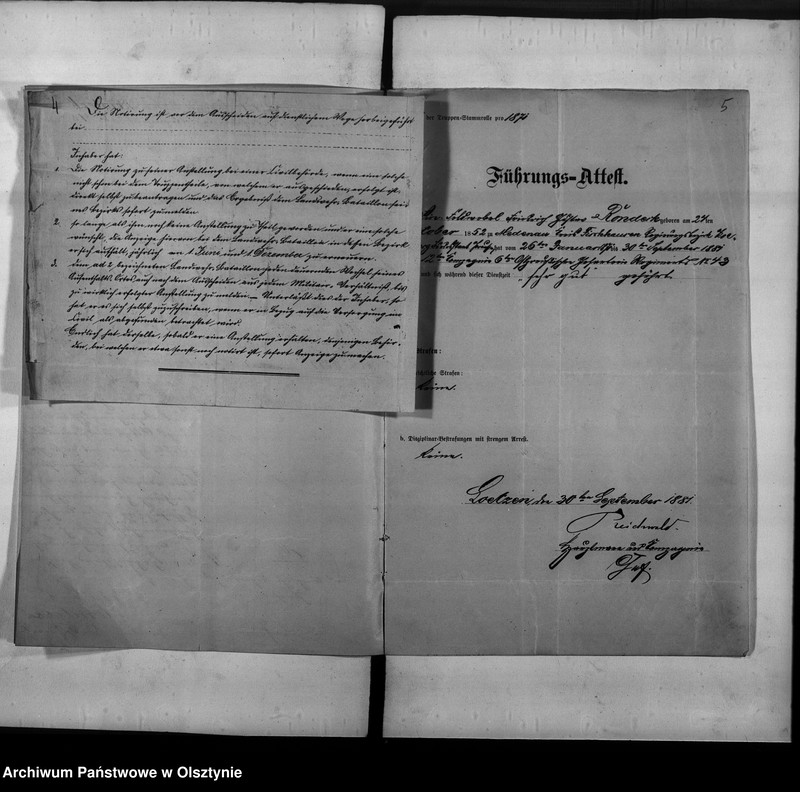 4
Die Notirung ist vor dem Ausscheiden auf dienstlichem Wege herbeigeführt
bei
Inhaber hat:
1. Die Notirung zu seiner Anstellung bei einer Civilbehörde, wenn eine solche
nicht schon bei dem Truppentheile, von welchem er ausgeschieden, erfolgt ist,
direkt selbst zu beantragen und das Ergebniß dem Landwehr-Bataillon sei-
nes Bezirks sofort zu melden.
2. so lange als ihm noch keine Anstellung zu Theil geworden und er eine solche
wünscht, die Anzeige hiervon bei dem Landwehr-Bataillon in dessen Bezirk
er sich aufhält, jährlich am 1. Juni und 1. Dezember zu erneuern.
3. dem ad 2 bezeichneten Landwehr-Bataillon jeden dauernden Wechsel seines
Aufenthalts-Ortes auch nach dem Ausscheiden aus jedem Militair-Verhältniß, bis
zu wirklich erfolgter Anstellung zu melden. Unterläßt dies der Inhaber, so
hat er es sich selbst zuzuschreiben, wenn er in Bezug auf die Versorgung im
Civil als abgefunden betrachtet wird.
Endlich hat derselbe, sobald er eine Anstellung erhalten, denjenigen Behör-
den, bei welchen er etwa sonst noch notirt ist, sofort Anzeige zu machen.
5
der Truppen-Stammrolle pro 1874
Führungs-Attest.
Feldwebel Friedrich Rondeck geboren am 24ten
1852 Kreis Regierungsbezirk
hat vom 26ten Januar bis 30ten September 1881
12ten Compagnie 6ten Ostpreußischen Infanterie Regiments N. 43
und sich während dieser Dienstzeit sehr gut geführt.
Strafen:
Strafen:
keine.
b. Disziplinar-Bestrafungen mit strengem Arrest.
keine.
Loetzen, den 30ten September 1881.
Hauptmann und Compagnie
Chef.
Archiwum Państwowe w Olsztynie